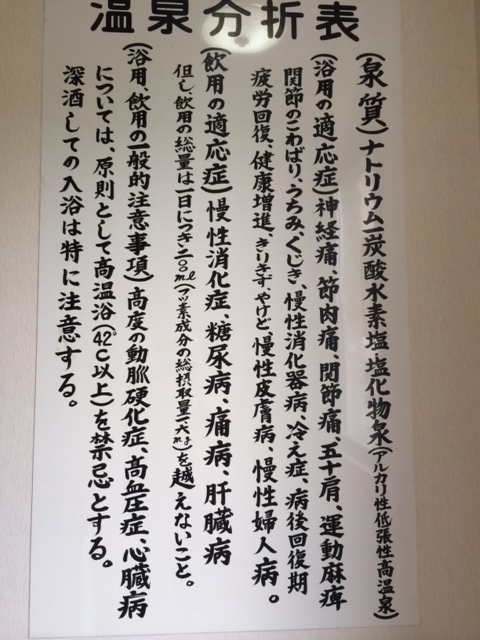 温泉分折表
(泉質)ナトリウム一炭酸水素塩塩化物泉(アルカリ性低張性高温泉)
(浴用の適応症)神経痛、節肉痛、関節痛、五十肩、運動麻痺
関節のこわばり、うちみ、くじき、慢性消化器病、冷え症、病後回復期
疲労回復、健康増進、きりきず、やけど、慢性皮膚病、慢性婦人病。
(飲用の適応症)慢性消化症、糖尿病、痛病、肝臓病
但し、飲用の総量は一日につき二〇〇ml(フッ素成分の総摂取量一、六mg)を越えないこと。
(浴用、飲用の一般的注意事項)高度の動脈硬化症、高血圧症、心臓病
については、原則として高温浴(42℃以上)を禁忌とする。
深酒しての入浴は特に注意する。